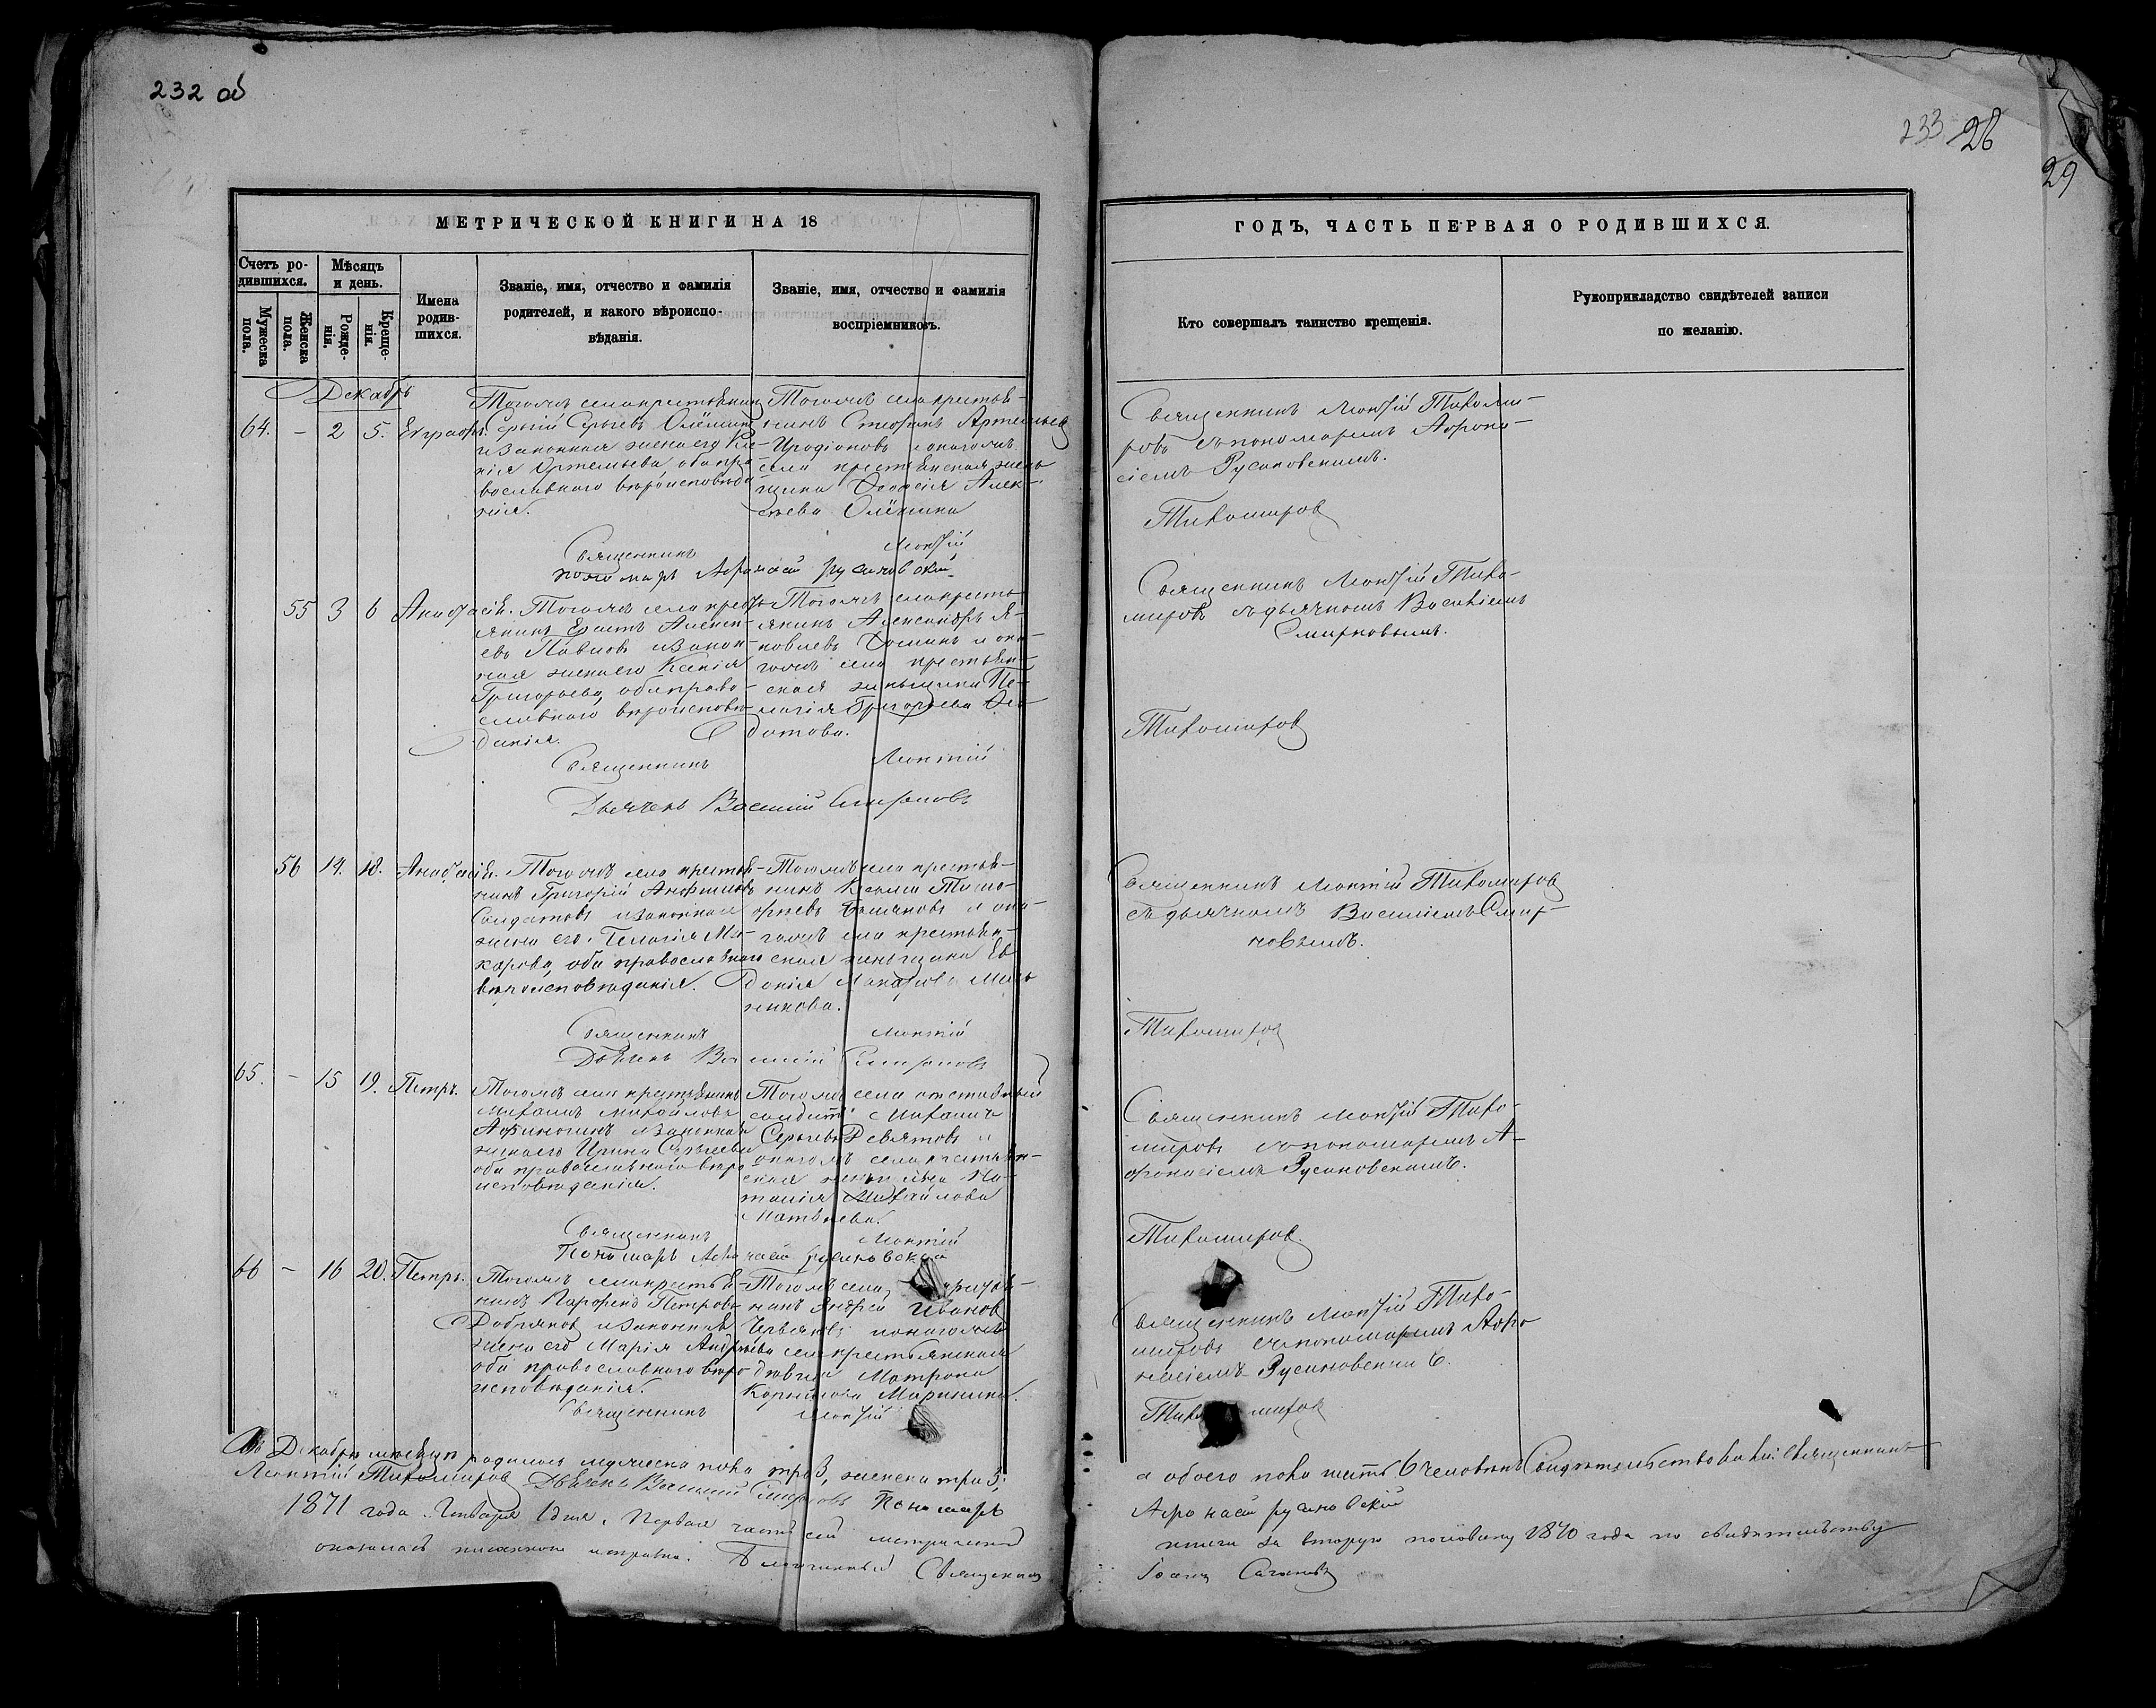 232 об
233 28
29
МЕТРИЧЕСКОЙ КНИГИ НА 18
ГОДЪ, ЧАСТЬ ПЕРВАЯ О РОДИВШИХСЯ.
Счетъ ро-
дившихся.
Мужеска
пола.
Женска
пола.
Мѣсяцъ
и день.
Рожде-
нія.
Креще-
нія.
Имена
родив-
шихся.
Званіе, имя, отчество и фамилія
родителей, и какого вѣроиспо-
вѣданія.
Званіе, имя, отчество и фамилія
воспріемниковъ.
Кто совершалъ таинство крещенія.
Рукоприкладство свидѣтелей записи
по желанію.
Декабрь
64. – 2 5. Евграфъ.
Тогожъ села крестьянинъ
Сергій Сергѣевъ Олёшин
и законная жена его Ксе-
нія Артемьева, оба пра-
вославнаго вѣроисповѣда-
нія.
Тогожъ села крестья-
нинъ Стефанъ Артемьевъ
Иродіоновъ и онагожъ
села крестьянская жен-
щина Алек-
сѣева Олёшина
Священникъ Леонтій Тихоми-
ровъ съ пономаремъ Афана-
сіемъ Русановскимъ.
Священникъ Леонтій
Тихомировъ
пономарь Афанасій Русановскій
55 3 6 Анастасія.
Тогожъ села кресть-
янинъ Алексѣ-
евъ Павловъ и закон-
ная жена его Ксенія
Григорьева, оба право-
славнаго вѣроисповѣ-
данія.
Тогожъ села кресть-
янинъ Александръ Я-
ковлевъ Ѳоминъ и она-
гожъ села крестьян-
ская женьщина Пе-
лагія Григорьева Ѳе-
дотова.
Священникъ Леонтій Тихо-
мировъ съ дьячкомъ Василіемъ
Смирновымъ.
Священникъ Леонтій
Тихомировъ
Дьячекъ Василій Смирновъ
56 14. 18. Анастасія.
Тогожъ села крестья-
нинъ Григорій Анфимовъ
Солдатовъ и законная
жена его Пелагія Ма-
карова, оба православнаго
вѣроисповѣданія.
Тогожъ села крестья-
нинъ Тимо-
ѳеевъ и она-
гожъ села крестьян-
ская женьщина Ев-
докія Макарова Мель-
никова.
Священникъ Леонтій Тихомировъ
съ дьячкомъ Василіемъ Смир-
новымъ.
Священникъ Леонтій
Тихомировъ
Дьячекъ Василій Смирновъ
65. – 15 19. Петръ.
Тогожъ села крестьянинъ
Михаилъ Михайловъ
Афиногинъ и законная
жена его Ирина Сергѣева
оба православнаго вѣро-
исповѣданія.
Тогожъ села отставный
солдатъ Михаилъ
Сергѣевъ Девятовъ и
онагожъ села крестьян-
ская женьщина На-
талія Михайлова
Матвѣева.
Священникъ Леонтій Тихо-
мировъ съ пономаремъ А-
фанасіемъ Русановскимъ.
Священникъ Леонтій
Тихомировъ.
Пономарь Афанасій Русановскій
66 – 16 20. Петръ.
Тогожъ села крестья-
нинъ Парфенъ Петровъ
и законная
жена его Марія Андреева
оба православнаго вѣро-
исповѣданія.
Тогожъ села
нинъ Андрей Ивановъ
Червяковъ и онагожъ
села крестьянская
дѣвица Матрона
Корнилова Маринина.
Священникъ Леонтій Тихо-
мировъ съ пономаремъ Афа-
насіемъ Русановскимъ.
Священникъ Леонтій
Тихомировъ
Въ Декабрѣ мѣсяцѣ родилось мужеска пола три 3, женска три 3,
а обоего пола шесть 6 человѣкъ Свидѣтельствовали: Священникъ
Леонтій Тихомировъ Дьячекъ Василій Смирновъ Пономарь
Афанасій Русановскій
1871 года Генваря 1 дня. Первая часть сей метрической
книги за вторую половину 1870 года по свидѣтельству
оказалась писанною исправно. Благочинный Священникъ
Іоаннъ